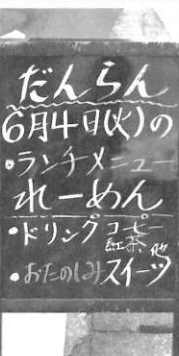 だんらん
6月4日(火)の
•ランチメニュー
れーめん
•ドリンク コーヒー
紅茶 他
•おたのしみスイーツ